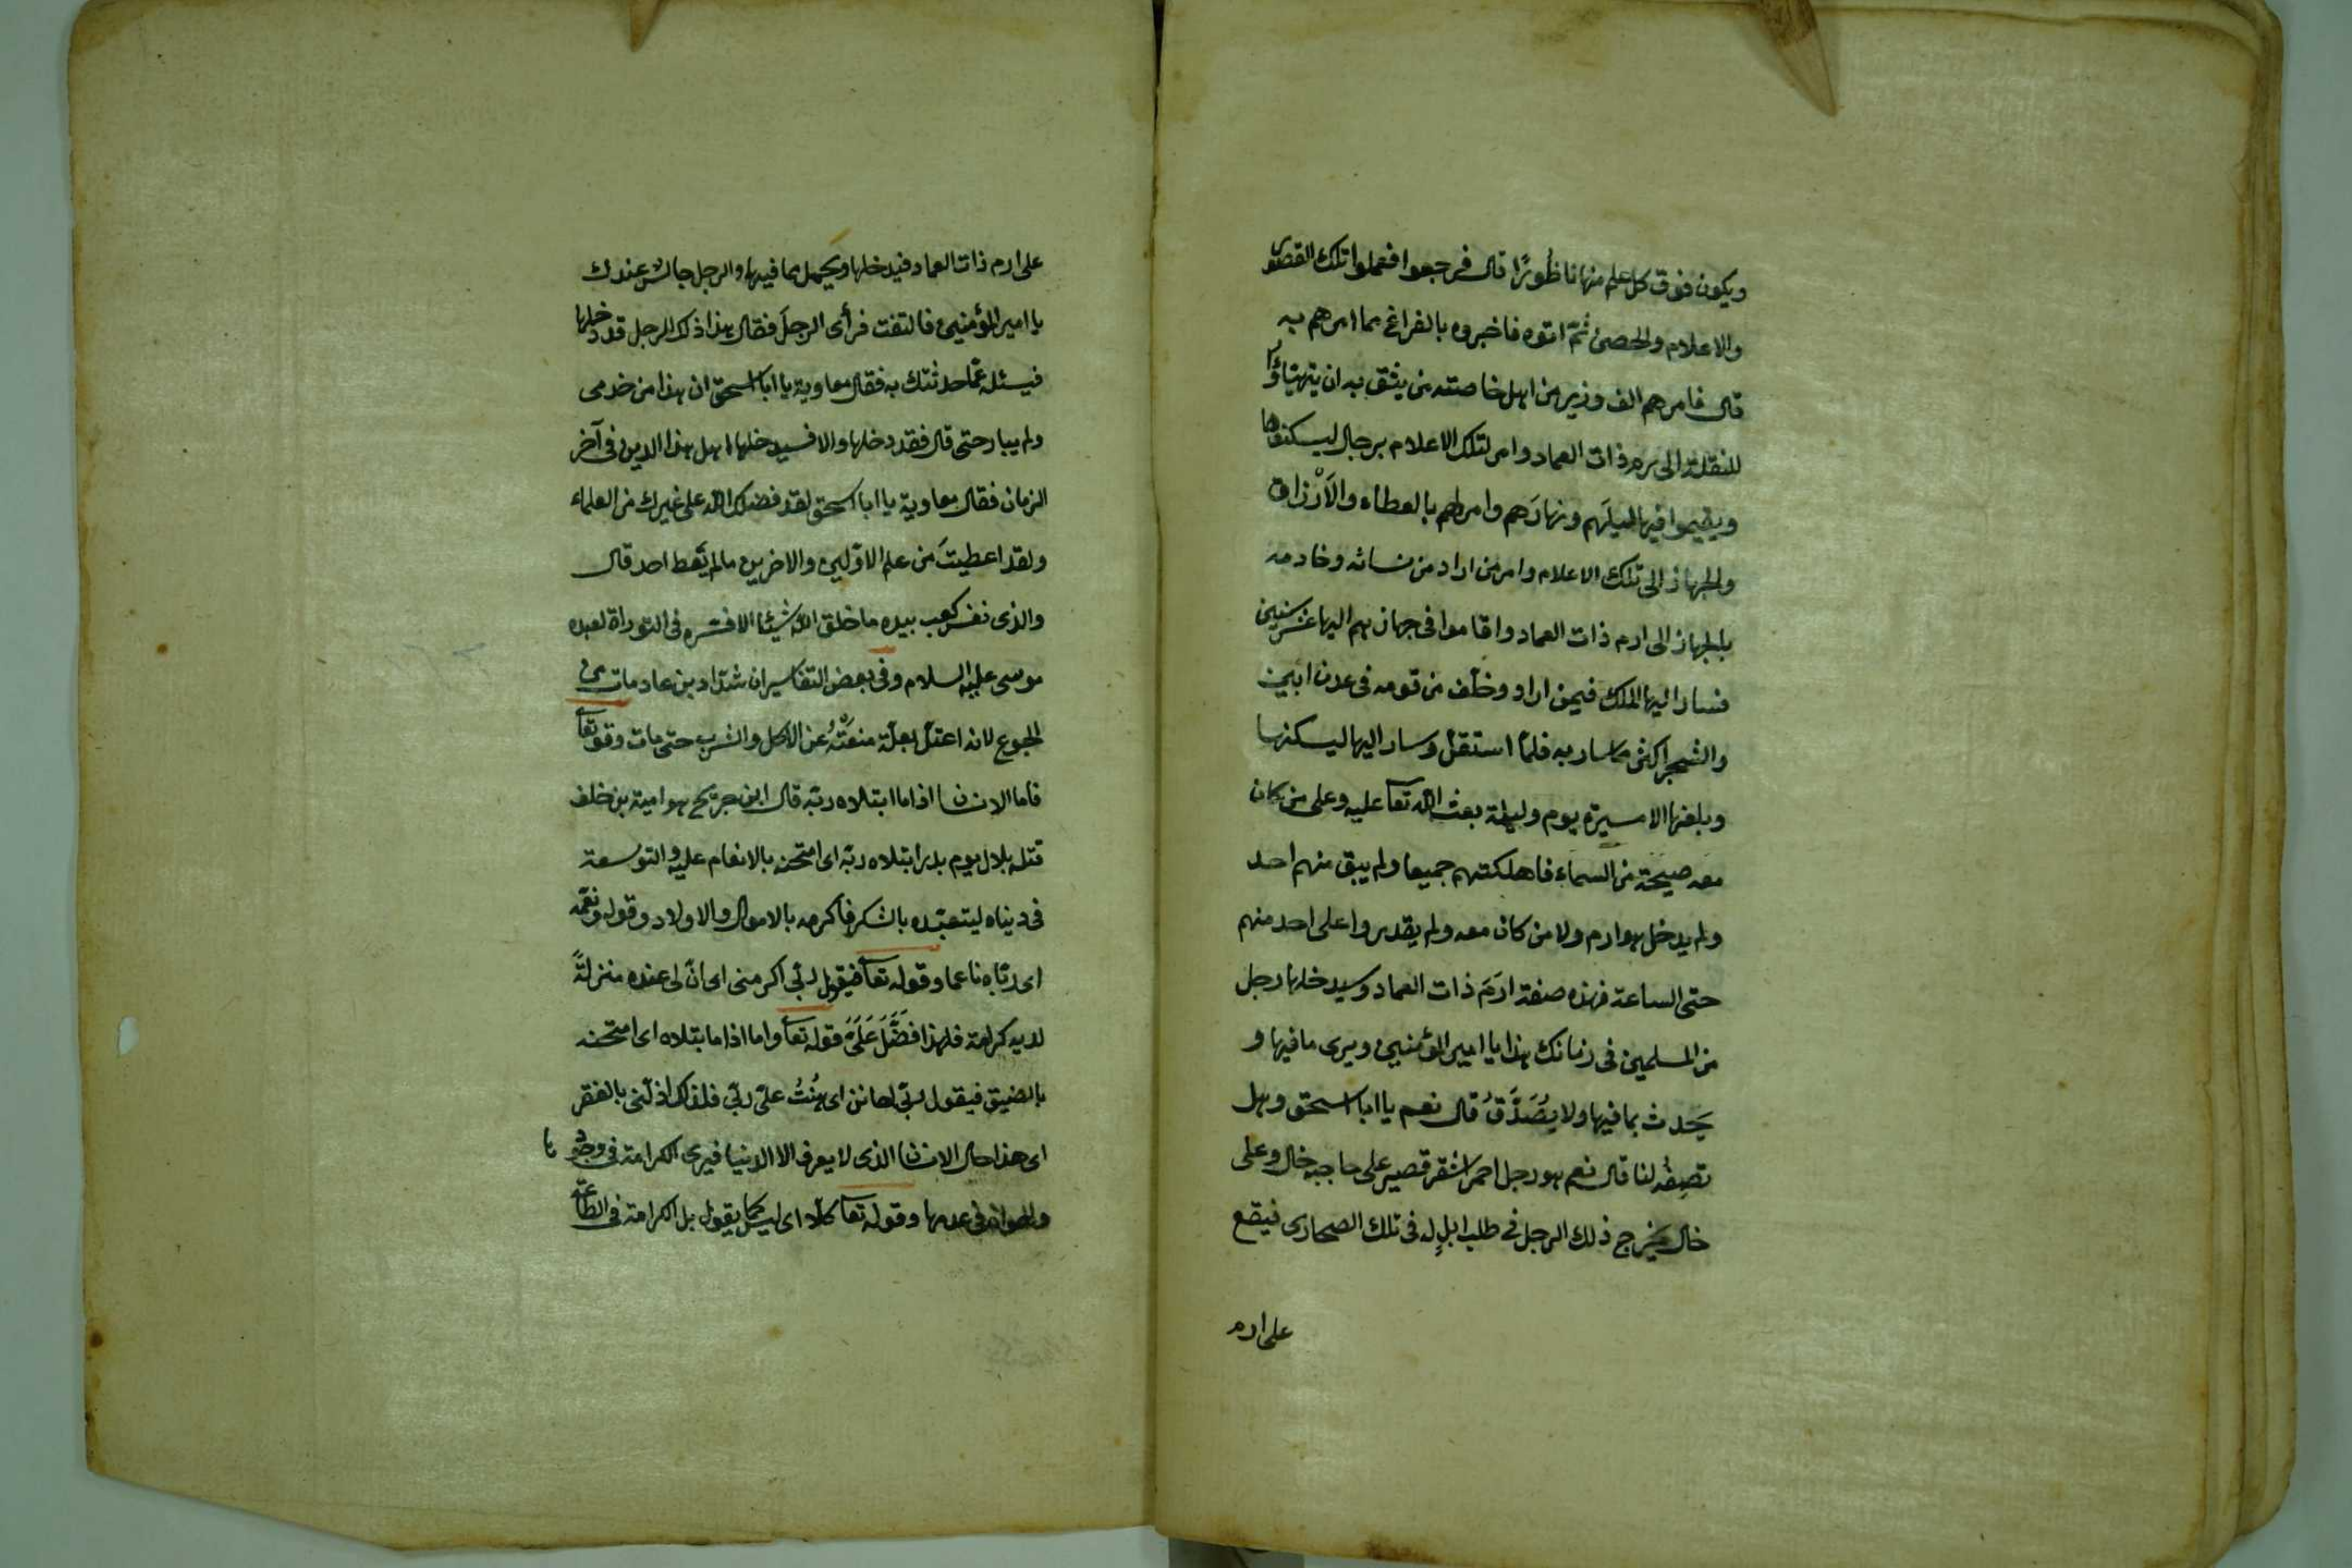 ويكون فوق كل علم منها ناظورًا قال فرجعوا فعملوا تلك القصور
والاعلام والحصن ثمّ اتوه فاخبروه بالفراغ مما امرهم به
قال فامرهم الف وزير من اهل خاصته من يثق به ان يتهيّاؤا
للنقلة الى ارم ذات العماد وامر لتلك الاعلام برجال ليسكنوها
ويقيموا فيها ليلَهم ونهارَهم وامر لهم بالعطاء والاَرْزاق
والجهاز الى تلك الاعلام وامر من اراد من نسائه وخادمه
بالجهاز الى ارم ذات العماد واقاموا فى جهازهم اليها عشر سنين
فسار اليها الملك فيمن اراد وخلّف من قومه فى عدن ابين
والشحر اكثر مما سار به فلمّا استقلّ وسار اليها ليسكنها
وبلغها الا مسيرة يوم وليلة بعث الله تعا عليه وعلى من كان
معه صيحة من السماء فاهلكتهم جميعا ولم يبق منهم احد
ولم يدخل هو ارم ولا من كان معه ولم يقدروا على احد منهم
حتى الساعة فهذه صفة ارَمَ ذات العماد وسيدخلها رجل
من المسلمين فى زمانك هذا يا امير المؤمنين ويرى ما فيها و
يحدث بما فيها ولا يُصَدَّقُ قال نعم يا ابا اسحق وهل
تصِفُه لنا قال نعم هو رجل احمر اشقر قصير على حاجبه خال وعلى
خال يخرج ذلك الرجل فى طلب ابلٍ له فى تلك الصحارى فيقع
على ارم
على ارم ذات العماد فيدخلها ويحمل مما فيها والرجل جالس عندك
يا امير المؤمنين فالتفت فرأى الرجلَ فقال هذا ذلك الرجل قد دخلها
فيسئله عمّا حدثتك به فقال معاوية يا ابا اسحق ان هذا من خدمى
ولم يبارحنى قال فقد دخلها والا فسيدخلها اهل هذا الدين فى آخر
الزمان فقال معاوية يا ابا اسحق لقد فضلك الله على غيرك من العلماء
ولقد اعطيتَ من علم الاوّلين والاخرين ما لم يُعط احد قال
والذى نفس كعب بيده ما خلق الله شيئا الا فسّره فى التوراة لعبده
موسى عليه السلام وفى بعض التفاسير ان شدّاد بن عاد مات من
الجوع لانه اعتلّ بعلّة منعَتْهُ عن الاكل والشرب حتى مات وقوله تعا
فاما الانسان اذا ما ابتلاه ربّه قال ابن جريح هو امية بن خلف
قتله بلال يوم بدر ابتلاه ربّه اى امتحنه بالانعام عليه والتوسعة
فى ديناه ليتعبّده بالشكر فاكرمه بالاموال والاولاد وقوله ونعّمه
اى ربّاه ناعما وقوله تعا فيقول ربّى اكرمنى اى انّ لى عنده منزلةً
لديه كرامة فلهذا فَضَّلَ عَلَىَّ قوله تعا واما اذا ما ابتلاه اى امتحنه
بالضيق فيقول ربّى اهانن اى هُنْتُ على ربّى فلذلك اذلّنى بالفقر
اى هذا حال الانسان الذى لا يعرف الا الدنيا فيرى الكرامة فى وجود
والهوان فى عدمها وقوله تعا كلاّ اى ليس كما يقول بل الكرامة فى الطاعة